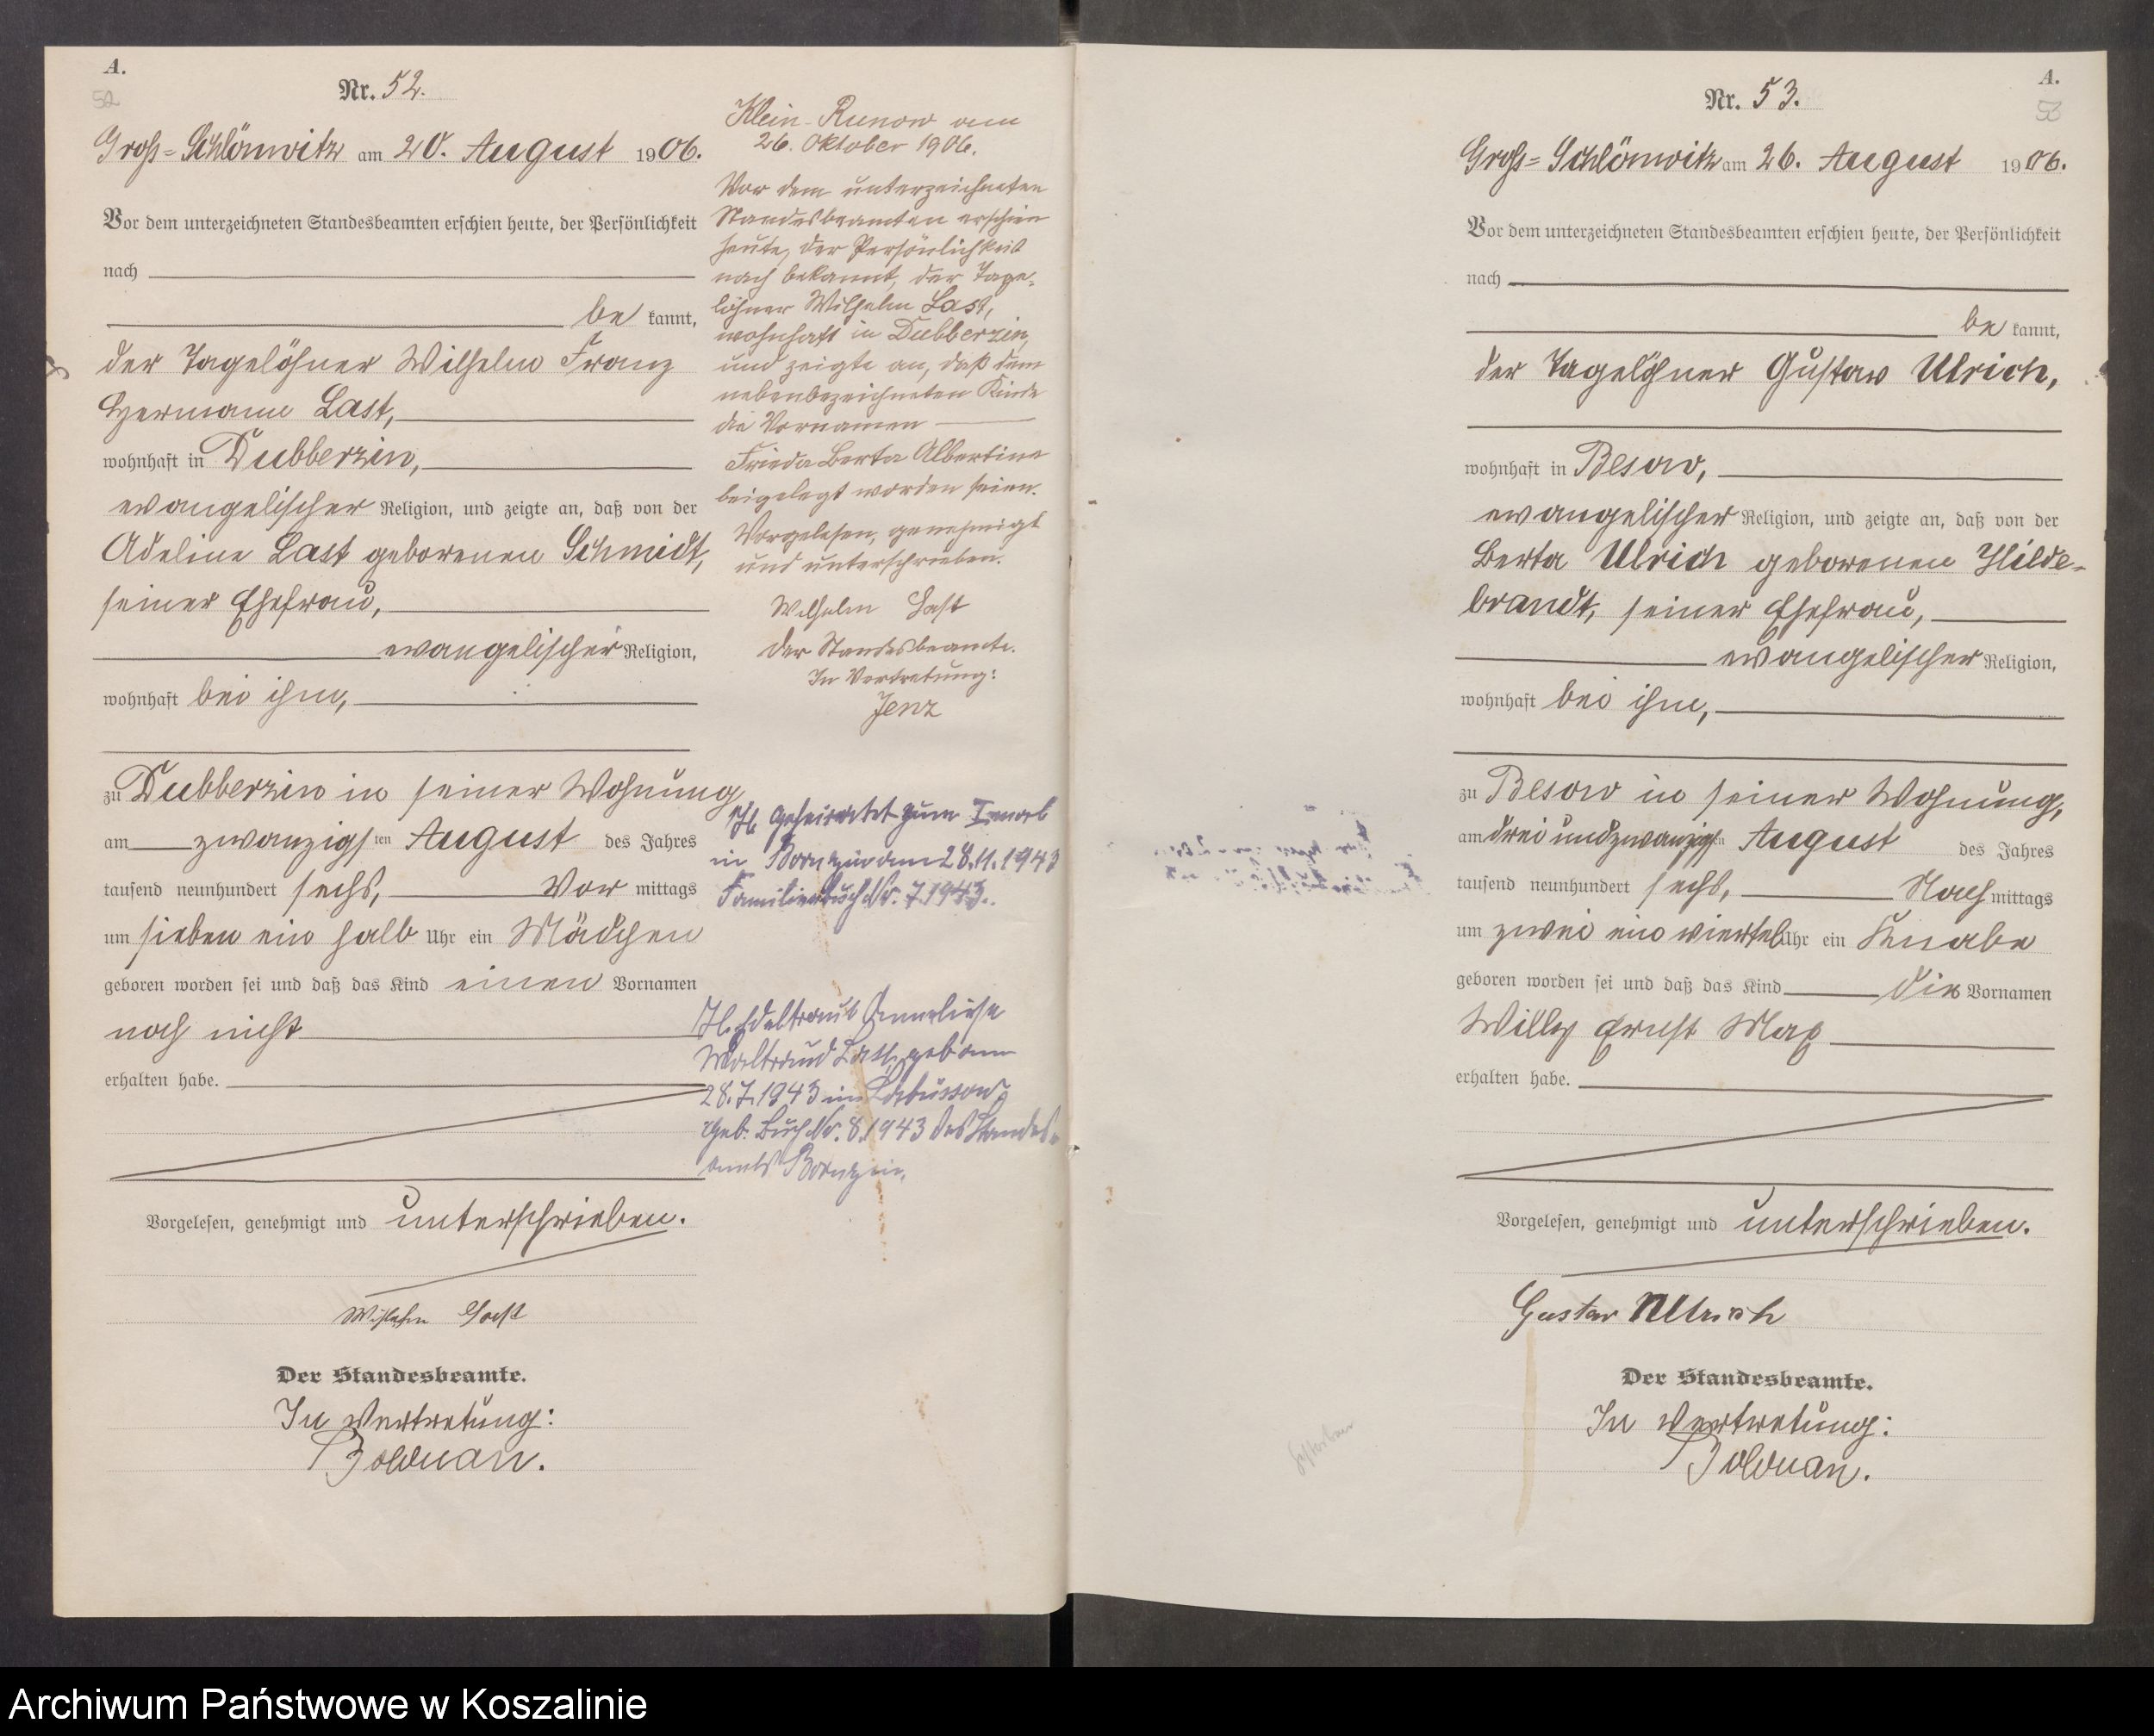 A.
52
Nr. 52.
Groß-Schlönwitz am 20. August 1906.
Vor dem unterzeichneten Standesbeamten erschien heute, der Persönlichkeit
nach
be kannt,
der Tagelöhner Wilhelm Franz
Hermann Last,
wohnhaft in Dubberzin,
evangelischer Religion, und zeigte an, daß von der
Adeline Last geborenen Schmidt,
seiner Ehefrau,
evangelischer Religion,
wohnhaft bei ihm,
zu Dubberzin in seiner Wohnung
am zwanzigsten August des Jahres
tausend neunhundert sechs, Vor mittags
um sieben ein halb Uhr ein Mädchen
geboren worden sei und daß das Kind einen Vornamen
noch nicht
erhalten habe.
Vorgelesen, genehmigt und unterschrieben.
Wilhelm Last
Der Standesbeamte.
In Vertretung:
Bolduan.
Klein-Runow am
26. Oktober 1906.
Vor dem unterzeichneten
Standesbeamten erschien
heute, der Persönlichkeit
nach bekannt, der Tage-
löhner Wilhelm Last,
wohnhaft in Dubberzin,
und zeigte an, daß dem
nebenbezeichneten Kinde
die Vornamen
Frieda Berta Albertine
beigelegt worden seien.
Vorgelesen, genehmigt
und unterschrieben.
Wilhelm Last
Der Standesbeamte.
In Vertretung:
Jenz
geheiratet zum
in Bornzin am 28.11.1943
Familienbuch Nr. 7.1943.
Edeltraut Anneliese
Waltraud Last, geb. am
28.7.1943 in Labüssow
Geb. Buch Nr. 8.1943 des Standes-
amts Bornzin.
A.
53
Nr. 53.
Groß-Schlönwitz am 26. August 1906.
Vor dem unterzeichneten Standesbeamten erschien heute, der Persönlichkeit
nach
be kannt,
der Tagelöhner Gustav Ulrich,
wohnhaft in Besow,
evangelischer Religion, und zeigte an, daß von der
Berta Ulrich geborenen Hilde-
brandt, seiner Ehefrau,
evangelischer Religion,
wohnhaft bei ihm,
zu Besow in seiner Wohnung,
am dreiundzwanzigsten August des Jahres
tausend neunhundert sechs, Nach mittags
um zwei ein viertel Uhr ein Knabe
geboren worden sei und daß das Kind die Vornamen
Willy Ernst Max
erhalten habe.
Vorgelesen, genehmigt und unterschrieben.
Gustav Ullrich
Der Standesbeamte.
In Vertretung:
Bolduan.
Archiwum Państwowe w Koszalinie